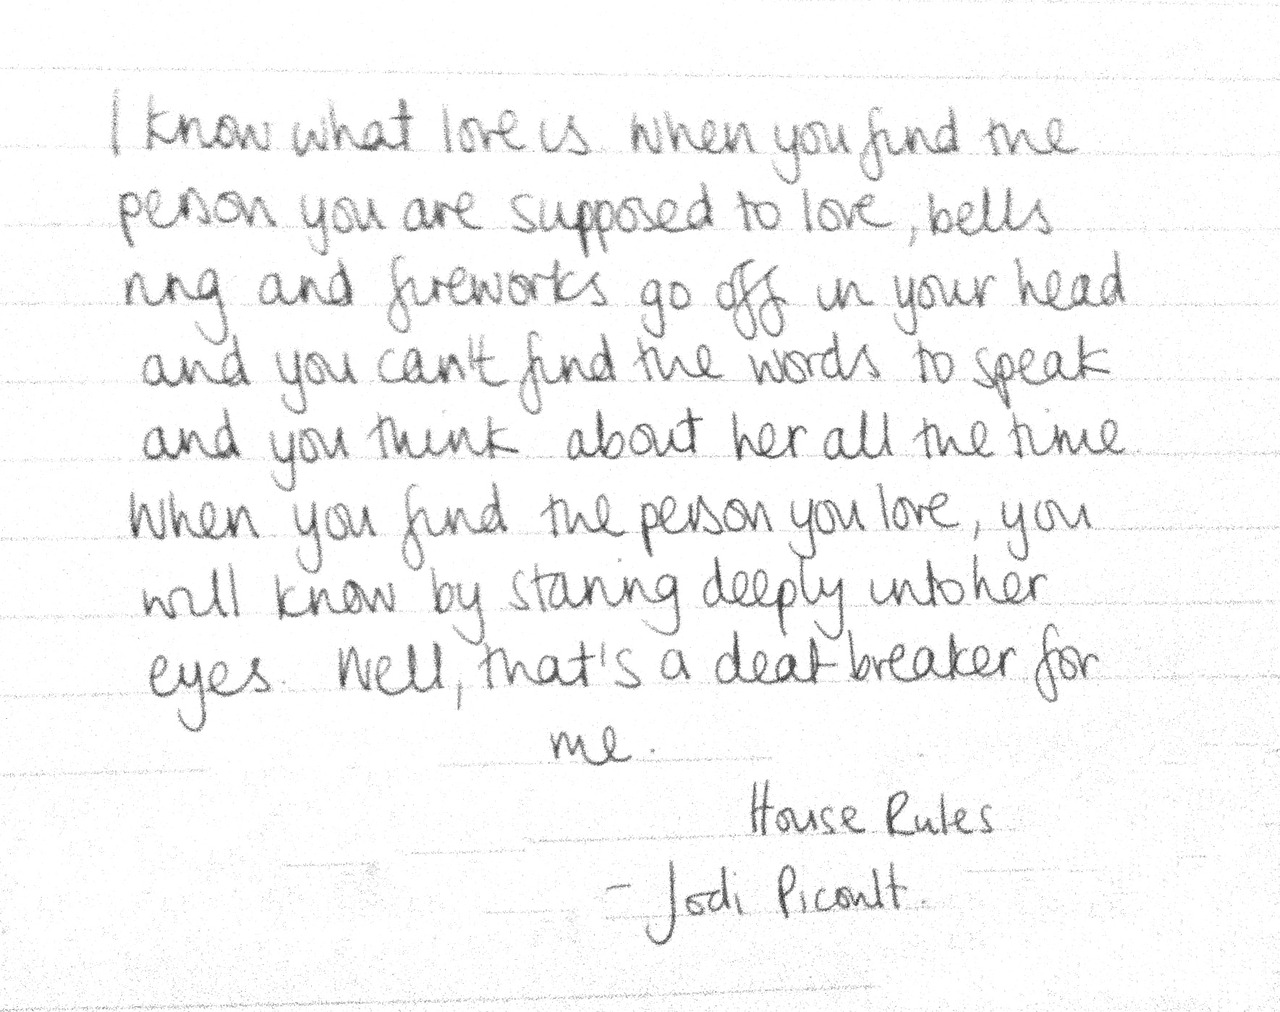 I know what love is When you find the
person you are supposed to love, bells
ring and fireworks go off in your head
and you can't find the words to speak
and you think about her all the time
When you find the person you love, you
will know by staring deeply into her
eyes. Well, that's a deal breaker for
me.
House Rules
- Jodi Picoult.